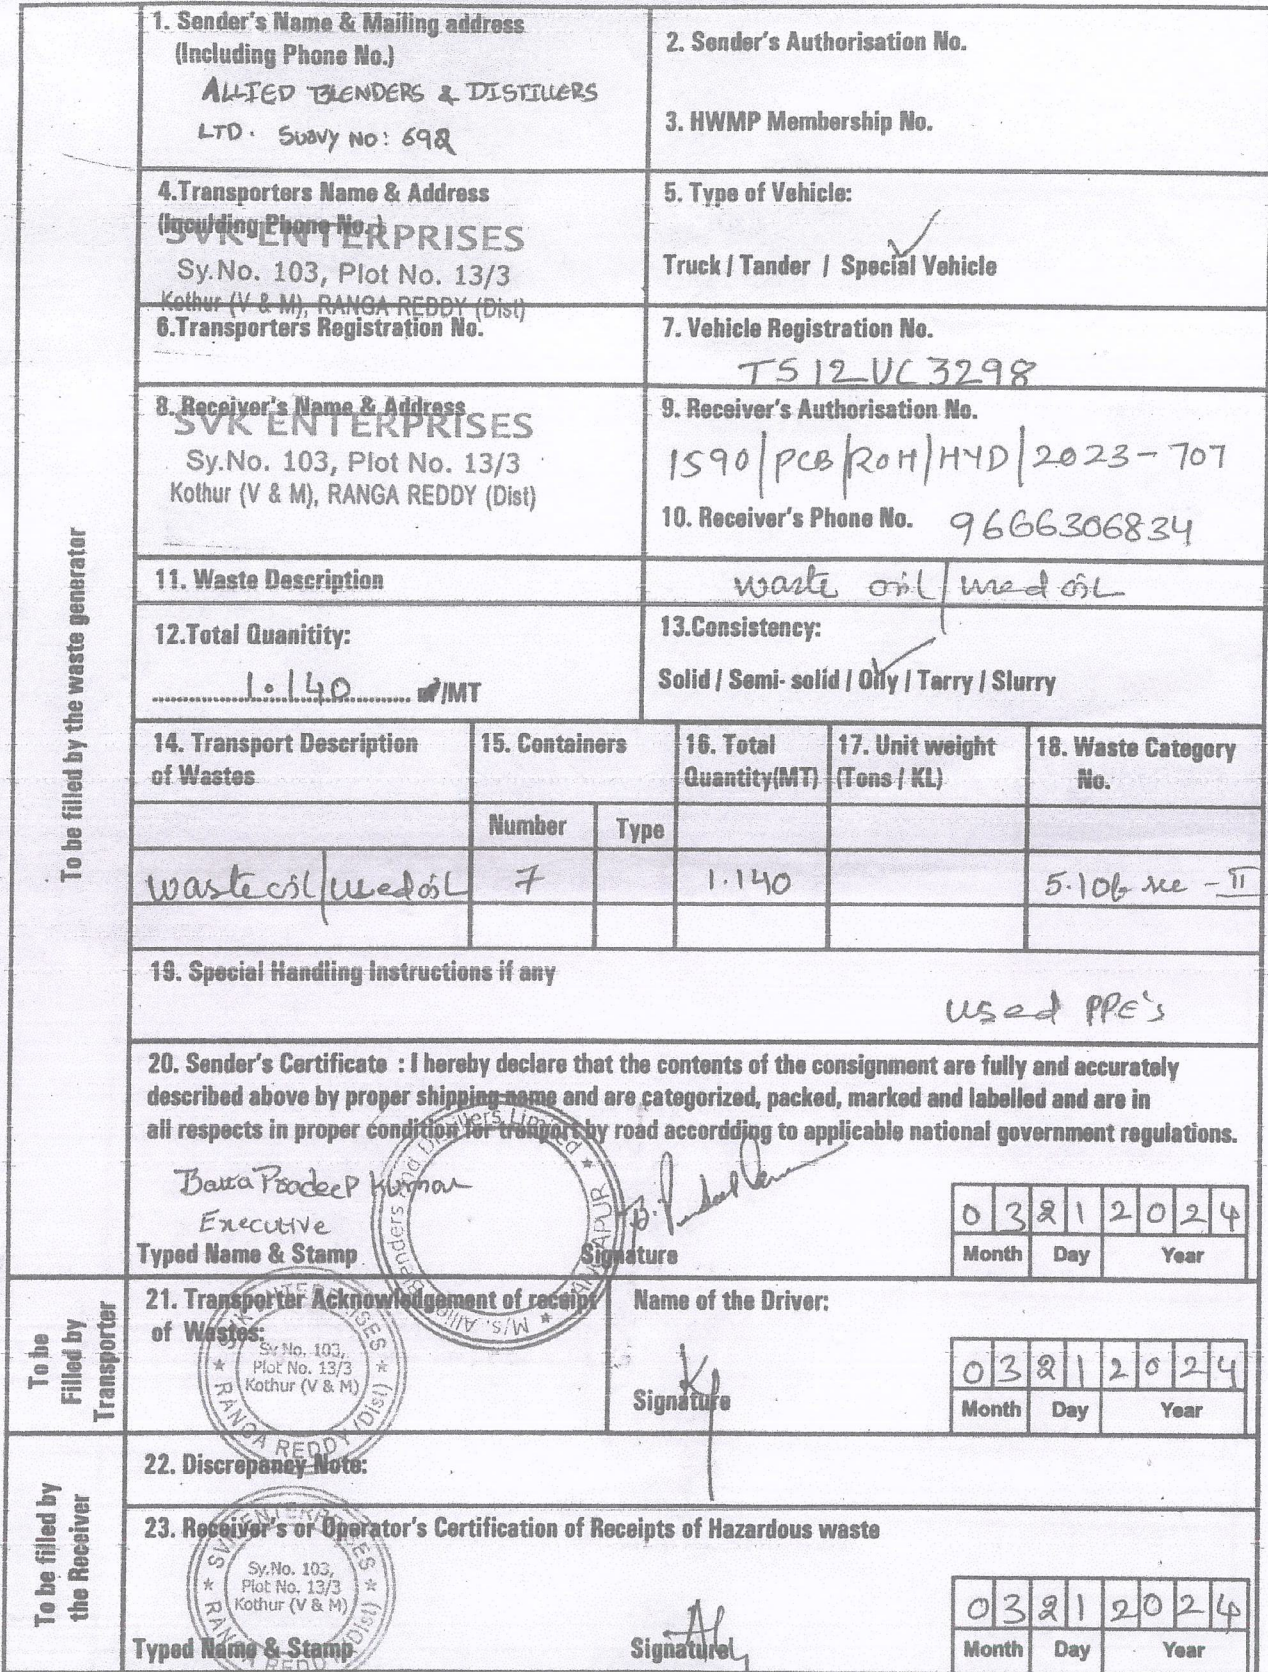 1. Sender's Name & Mailing address
(Including Phone No.)
ALLIED BLENDERS & DISTILLERS
LTD. SURVY NO: 692
2. Sender's Authorisation No.
3. HWMP Membership No.
4.Transporters Name & Address
(Iqculding Phone No.)
SVK ENTERPRISES
Sy.No. 103, Plot No. 13/3
Kothur (V & M), RANGA REDDY (Dist)
5. Type of Vehicle:
Truck / Tander / Special Vehicle
6.Transporters Registration No.
7. Vehicle Registration No.
TS12UC3298
8. Receiver's Name & Address
SVK ENTERPRISES
Sy.No. 103, Plot No. 13/3
Kothur (V & M), RANGA REDDY (Dist)
9. Receiver's Authorisation No.
1590/PCB/ROH/HYD/2023-707
10. Receiver's Phone No. 9666306834
11. Waste Description
waste oil/used oil
12.Total Quanitity:
1.140 /MT
13.Consistency:
Solid / Semi- solid / Oily / Tarry / Slurry
To be filled by the waste generator
14. Transport Description
of Wastes
15. Containers
16. Total
Quantity(MT)
17. Unit weight
(Tons / KL)
18. Waste Category
No.
Number Type
waste oil/used oil 7 1.140 5.1 - II
19. Special Handling Instructions if any
used PPE's
20. Sender's Certificate : I hereby declare that the contents of the consignment are fully and accurately
described above by proper shipping name and are categorized, packed, marked and labelled and are in
all respects in proper condition for tranport by road accordding to applicable national government regulations.
Pradeep Kumar
Executive
Typed Name & Stamp
M/s. Allied Blenders and Distillers Limited
Signature
03 21 2024
Month Day Year
To be
Filled by
Transporter
21. Transporter Acknowledgement of receipt
of Wastes:
SVK ENTERPRISES
Sy.No. 103,
Plot No. 13/3
Kothur (V & M)
RANGA REDDY (Dist)
Name of the Driver:
Signature
03 21 2024
Month Day Year
To be filled by
the Receiver
22. Discrepancy Note:
23. Receiver's or Operator's Certification of Receipts of Hazardous waste
SVK ENTERPRISES
Sy.No. 103,
Plot No. 13/3
Kothur (V & M)
RANGA REDDY (Dist)
Typed Name & Stamp
Signature
03 21 2024
Month Day Year